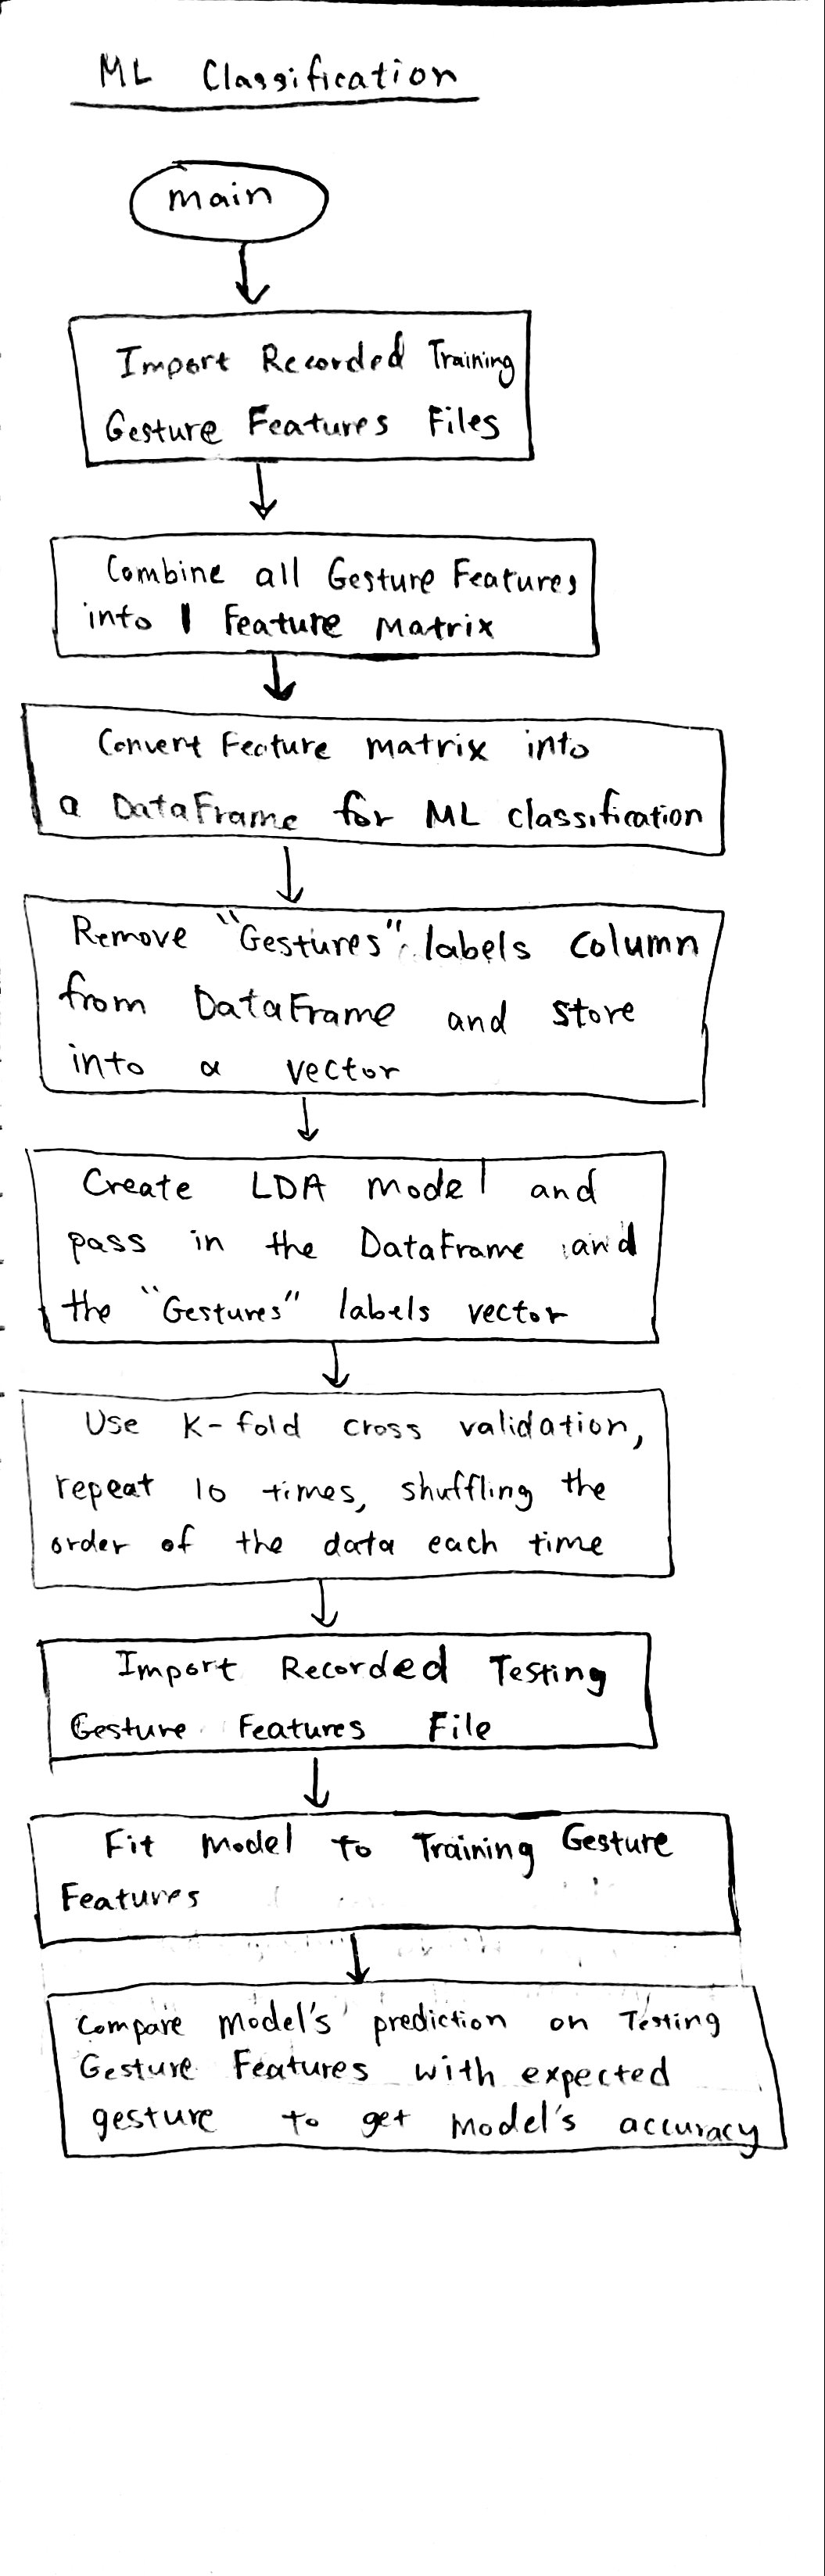 ML Classification
main
Import Recorded Training
Gesture Features Files
Combine all Gesture Features
into 1 Feature Matrix
Convert Feature matrix into
a DataFrame for ML classification
Remove "Gestures" labels column
from DataFrame and store
into a vector
Create LDA model and
pass in the DataFrame and
the "Gestures" labels vector
Use K-fold cross validation,
repeat 10 times, shuffling the
order of the data each time
Import Recorded Testing
Gesture Features File
Fit Model to Training Gesture
Features
Compare Model's prediction on Testing
Gesture Features with expected
gesture to get Model's accuracy